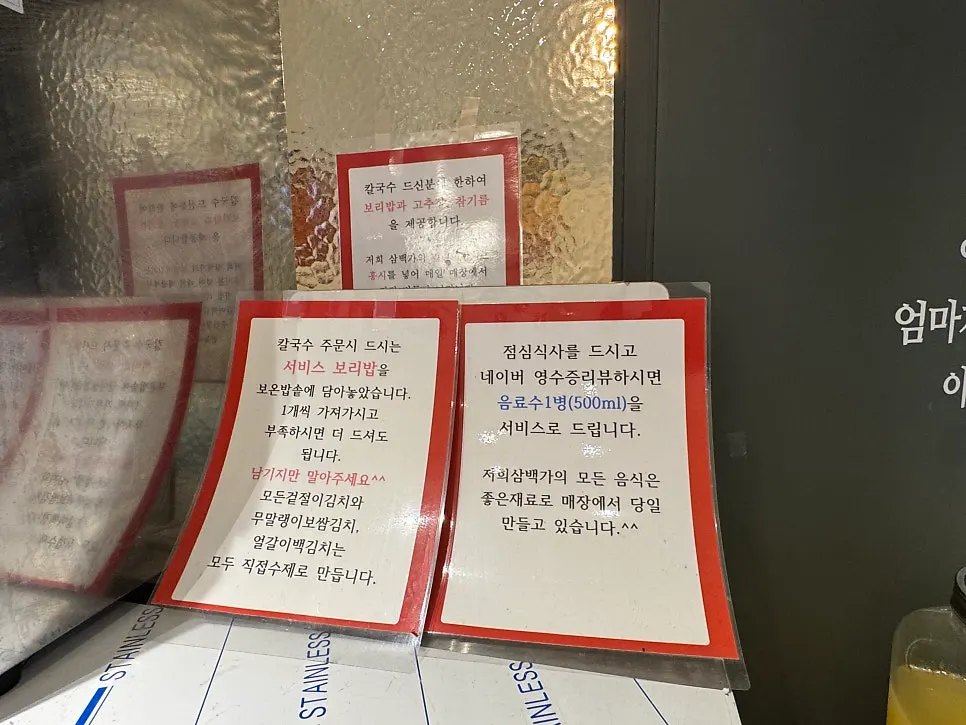 칼국수 드신분에 한하여
보리밥과 고추장, 참기름
을 제공합니다
저희 삼백가의
홍시를 넣어 매일 매장에서
칼국수 주문시 드시는
서비스 보리밥을
보온밥솥에 담아놓았습니다.
1개씩 가져가시고
부족하시면 더 드셔도
됩니다.
남기지만 말아주세요^^
모든겉절이김치와
무말랭이보쌈김치,
얼갈이백김치는
모두 직접수제로 만듭니다.
점심식사를 드시고
네이버 영수증리뷰하시면
음료수1병(500ml)을
서비스로 드립니다.
저희삼백가의 모든 음식은
좋은재료로 매장에서 당일
만들고 있습니다.^^
엄마
STAINLESS
STAINLESS
STAINLESS